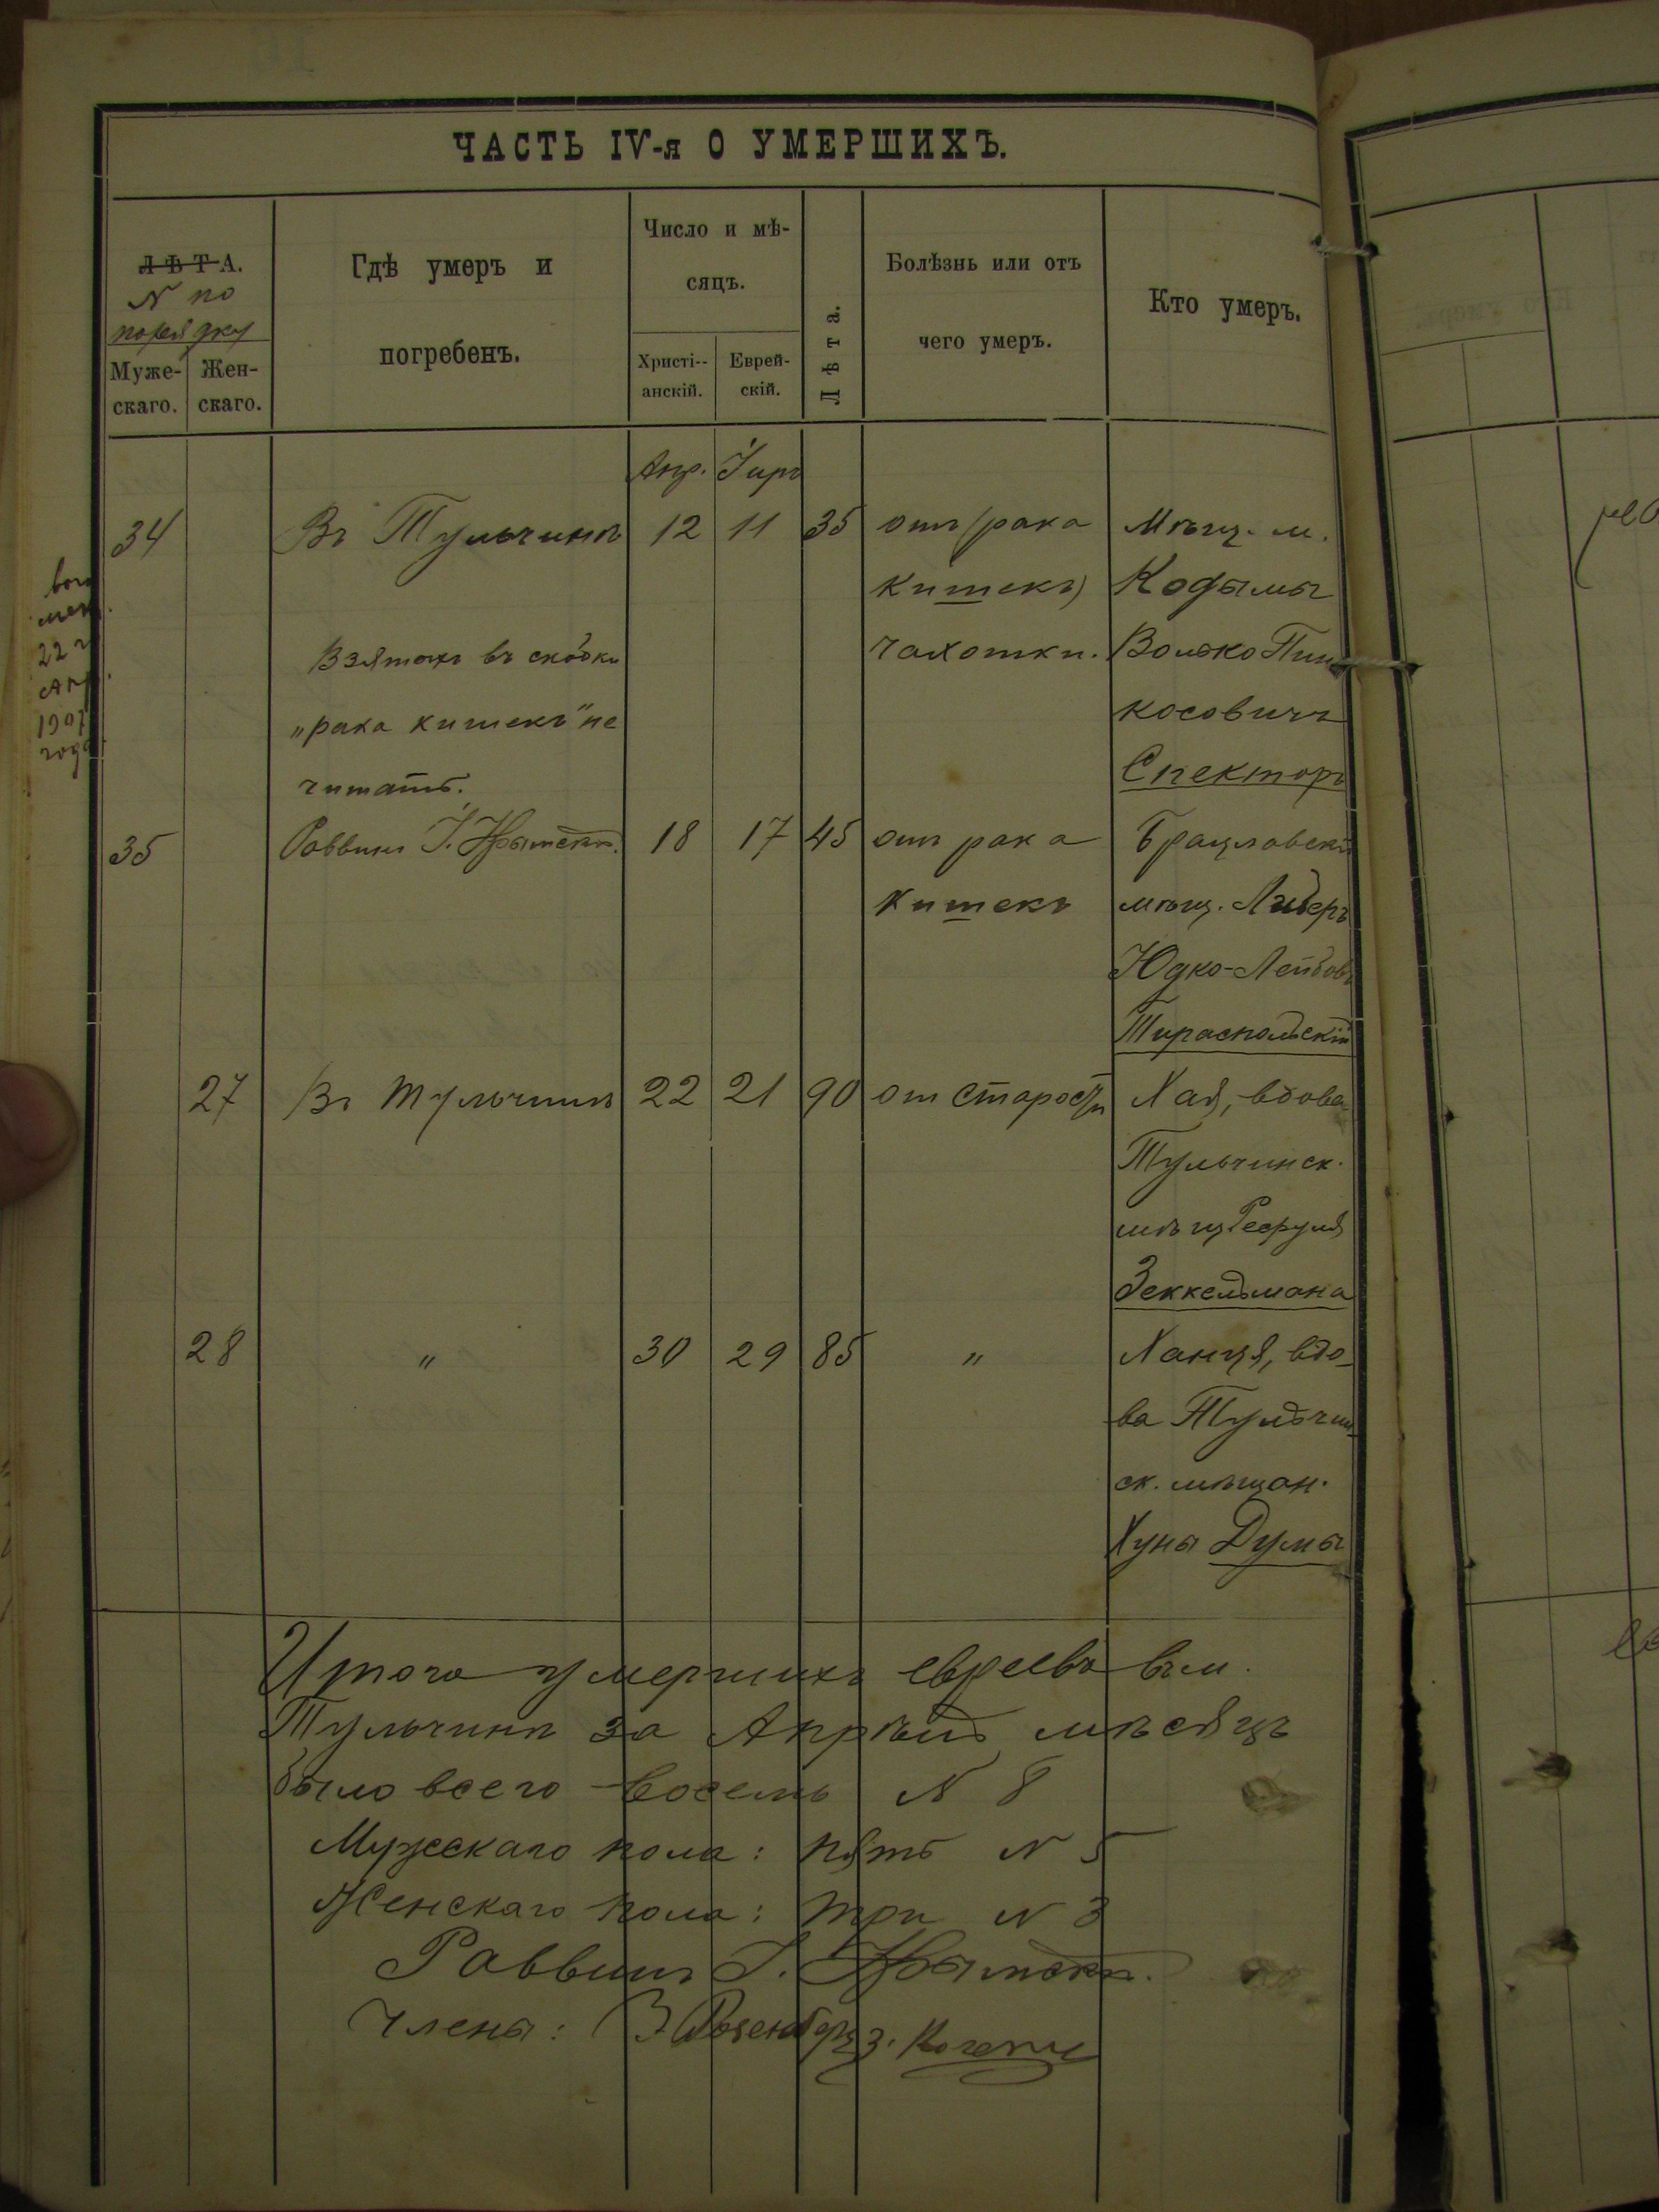 ЧАСТЬ IV-я О УМЕРШИХЪ.
ЛѢТА.
N по
порядку
Муже-
скаго.
Жен-
скаго.
Гдѣ умеръ и
погребенъ.
Число и мѣ-
сяцъ.
Христі--
анскій.
Еврей-
скій.
Лѣта.
Болѣзнь или отъ
чего умеръ.
Кто умеръ.
Апр. Іиръ
34 Въ Тульчинѣ 12 11 35 отъ (рака Мѣщ. м.
кишекъ) Кодымы
Взятыхъ въ скобки чахотки. Волько Пин
„рака кишекъ" не косовичъ
читать. Спекторъ
22
Апр.
1907
года
35 Раввинъ І. Крымскій. 18 17 45 отъ рака Брацлавскій
кишекъ мѣщ. Либеръ
Юдко-Лейбовъ
Тираспольскій
27 Въ Тульчинѣ 22 21 90 от старости Хая, вдова
Тульчинск.
мѣщ
Зеккельмана
28 " 30 29 85 " Ханця, вдо-
ва Тульчин-
ск. мѣщан.
Хуны Думы
Итого умершихъ евреевъ въ м.
Тульчинѣ за Апрѣль мѣсяцъ
было всего восемь N 8
Мужескаго пола: пять N 5
Женскаго пола: три N 3
Раввинъ І. Крымскій.
Члены: З Розенберг З.